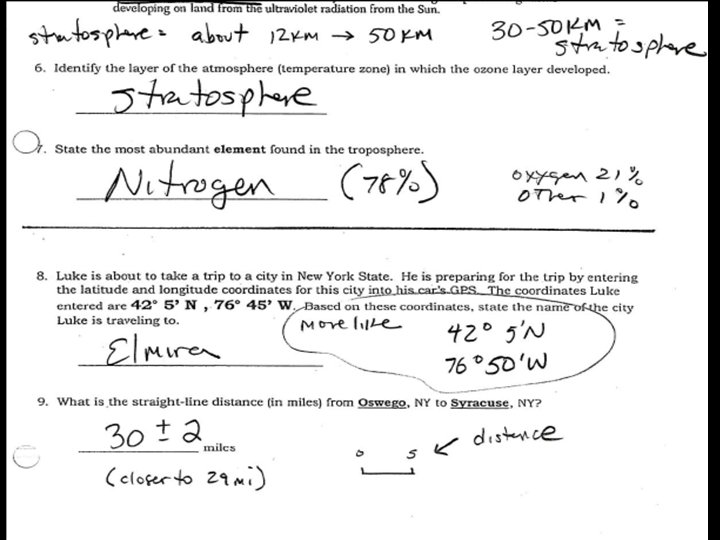 developing on land from the ultraviolet radiation from the Sun.
stratosphere = about 12KM → 50KM
30-50KM =
stratosphere
6. Identify the layer of the atmosphere (temperature zone) in which the ozone layer developed.
stratosphere
7. State the most abundant element found in the troposphere.
Nitrogen (78%)
oxygen 21%
OTher 1%
8. Luke is about to take a trip to a city in New York State. He is preparing for the trip by entering
the latitude and longitude coordinates for this city into his car's GPS. The coordinates Luke
entered are 42° 5' N , 76° 45' W. Based on these coordinates, state the name of the city
Luke is traveling to.
More like
42° 5'N
76° 50'W
Elmira
9. What is the straight-line distance (in miles) from Oswego, NY to Syracuse, NY?
30 ± 2 miles
(closer to 29 mi)
0 5 ↙ distance